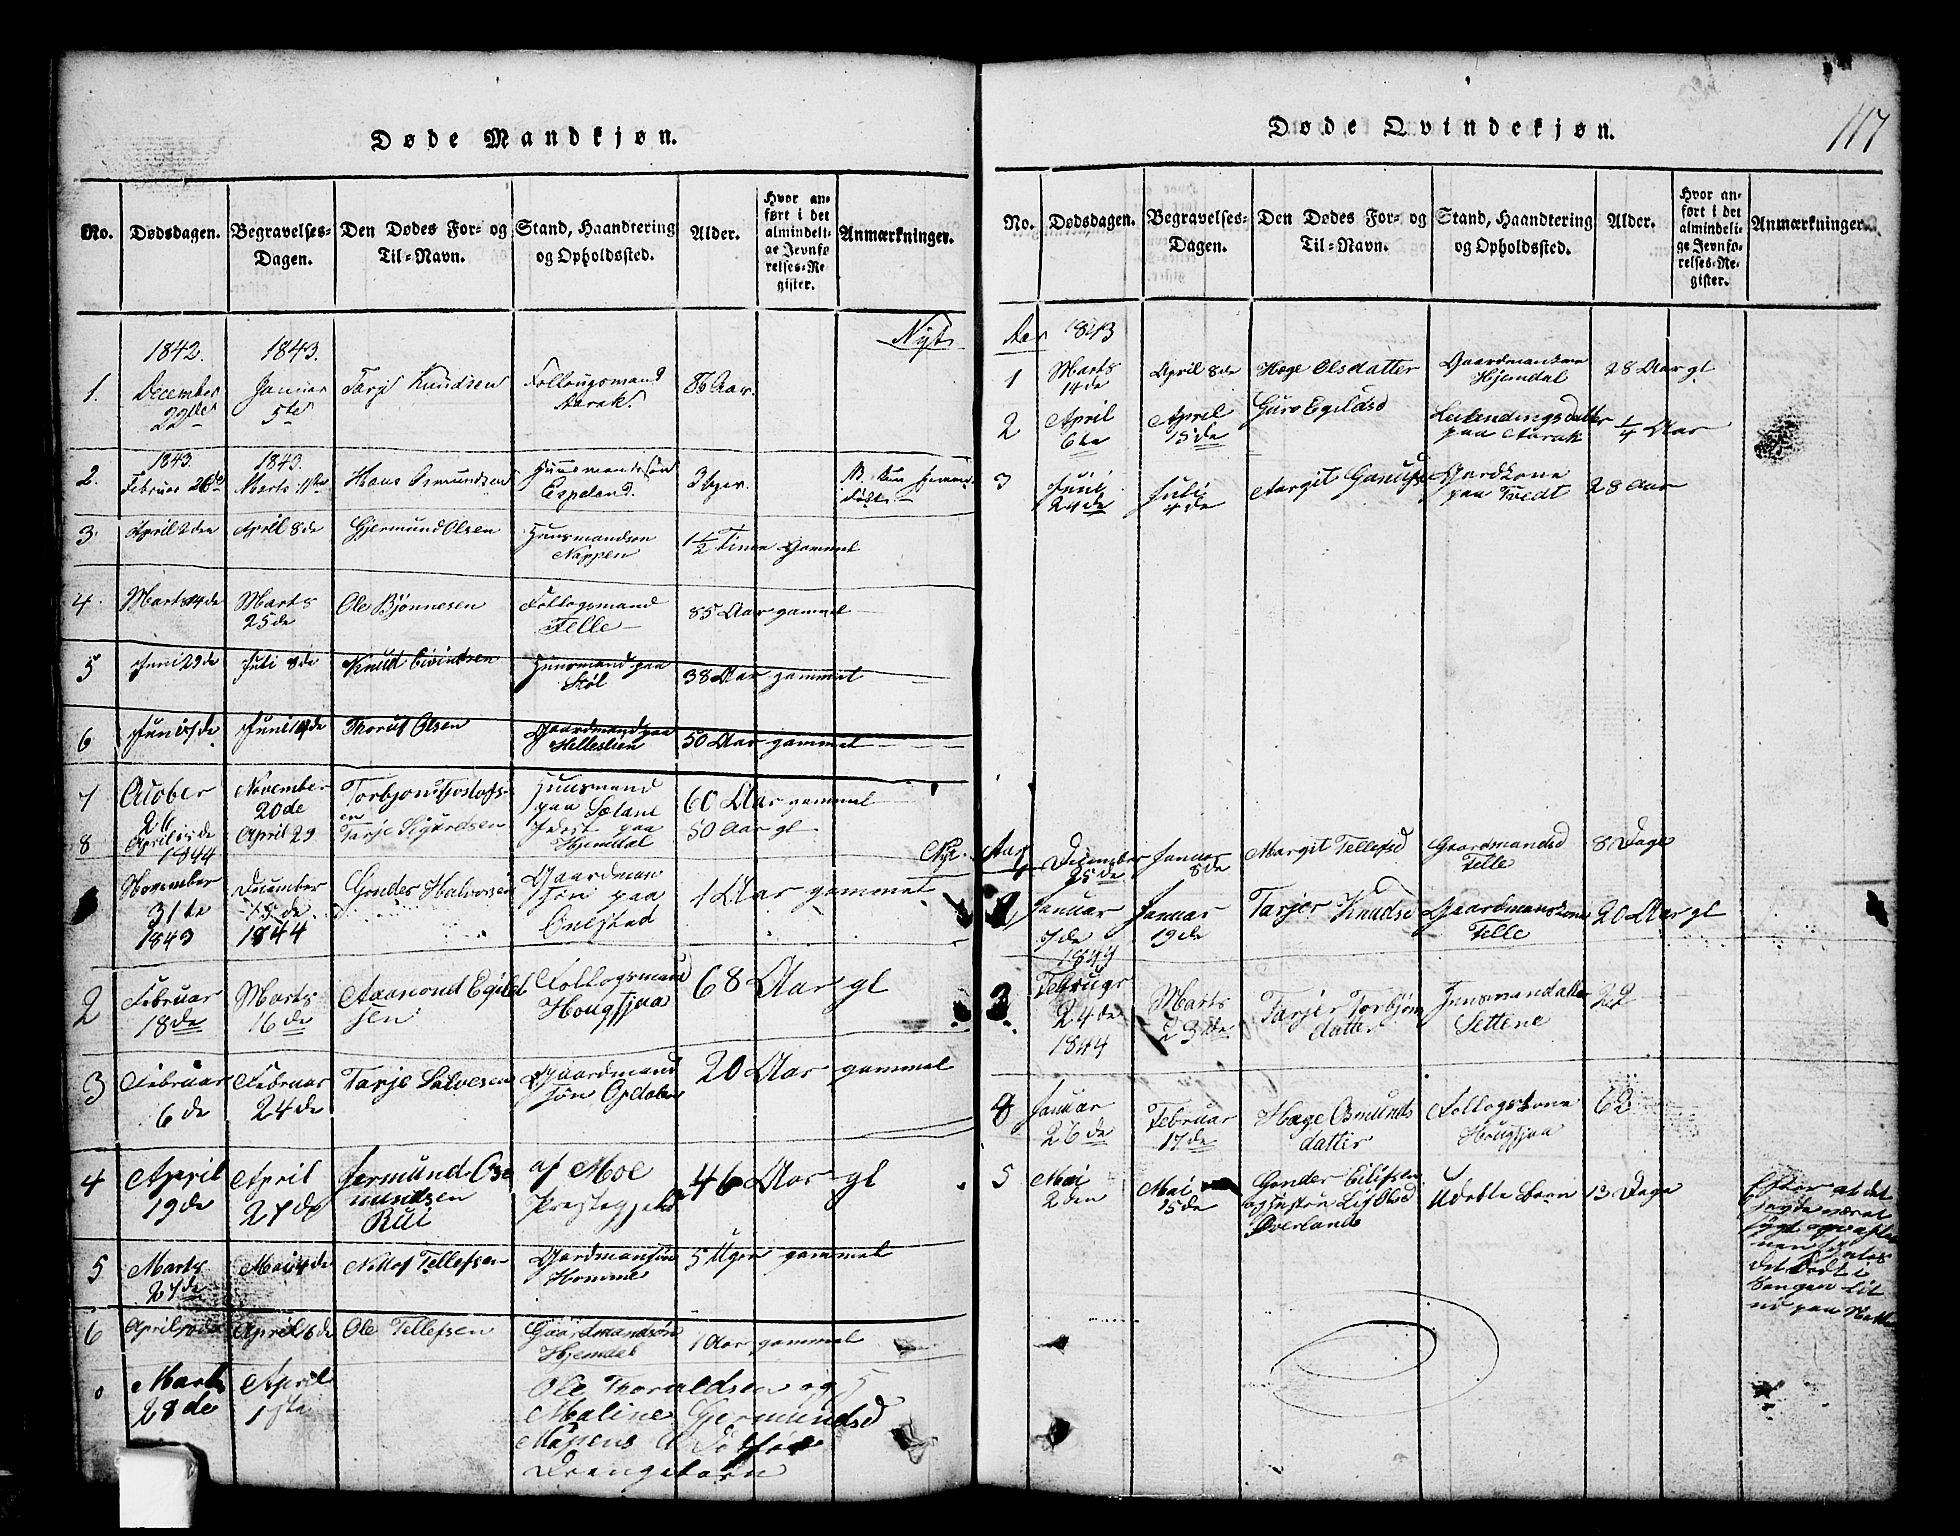 Døde Mandkjøn.
No. Dødsdagen. Begravelses-Dagen. Den Dødes For- og Til-Navn. Stand, Haandtering og Opholdssted. Alder. Hvor anført i det almindelige Jevnførelses-Register. Anmærkninger.
1842. 1843. Nyt
1. December 22de Januar 5te Tarje Knudsen Follougsmand Aarak 86 Aar.
2. 1843. Februar 26de 1843. Marts 11te Hans Osmundsen Huusmandssøn Espeland. 3 Uger.
3. April 2den April 8de Gjermund Olsen Huusmandsøn Nappen 1/2 Time Gammel
4. Marts 14de Marts 25de Ole Bjønnesen Follogsmand Felle 85 Aar gammel
5 Juni 29de Juli 8de Knud Eivindsen Huusmand paa Støl 38 Aar gammel
6 Juni de Juni de Thorus Olsen Gaardmand paa Helleslien 50 Aar gammel
7 Octobr 26 November 20de Torbjøn Tjostofsen Huusmand paa 60 Aar gammel
8 April de 1844 April 29 Tarje Sigurdsen paa Hjemdal 50 Aar gl
Nyt
November 31te 1843 December 15de 1844 Gunder Halvorsen Gaardman søn paa Onestad 1 Aar gammel
2 Februar 18de Marts 16de Aasmond Egildsen Follogsmand Hougsjaa 68 Aar gl
3 Februar 6de Februar 24de Tarje Salvesen Gaardmand søn Opdalen 20 Aar gammel
4 April 19de April 27de Jermund Osmundsen Rui af Moe Prestegjeld 46 Aar gl
5 Marts 27de Mai 4de Tellefsen Gardmansøn Homme 5 Uger gammel
6 April de April 6de Ole Tellefsen Gaardmandsøn Hjemdal 1 Aar gammel
Marts 28de April 1ste Ole Thoraldsen og
Maline Gjermundsd
Nappens Dødfød
Drengebarn
Døde Qvindekjøn.
117
No. Dødsdagen. Begravelses-Dagen. Den Dødes For- og Til-Navn. Stand, Haandtering og Opholdssted. Alder. Hvor anført i det almindelige Jevnførelses-Register. Anmærkninger.
Aar 1843
1 Marts 14de April 8de Hæge Olsdatter Gaardmankone Hjemdal 28 Aar gl
2 April 6te April 15de Guro Egildsd Leilendingsdatter paa Aarak 1/4 Aar
3 Juni 24de Juli 4de Aargit Gardkone paa Tvedt 28 Aar
Aar
December 25de Januar 8de Margit Tellefsd Gaardmandsd Felle 8 Dage
2 Januar 7de 1844 Januar 19de Tarjer Knudsd Gaardmanskone Felle 20 Aar gl
3 Februar 24de 1844 Marts 23de Tarjer Torbjøns datter Huusmandatter Settene 22
4 Januar 26de Februar 17de Hæge Osmunds datter Follogskone Hougsjaa 62
5 Mai 2den Mai 15de Gunder Eilifsen og Olsd Øverlands Udøbte Barn 13 Dage
Efter at det
det Dødt i
Sengen
paa